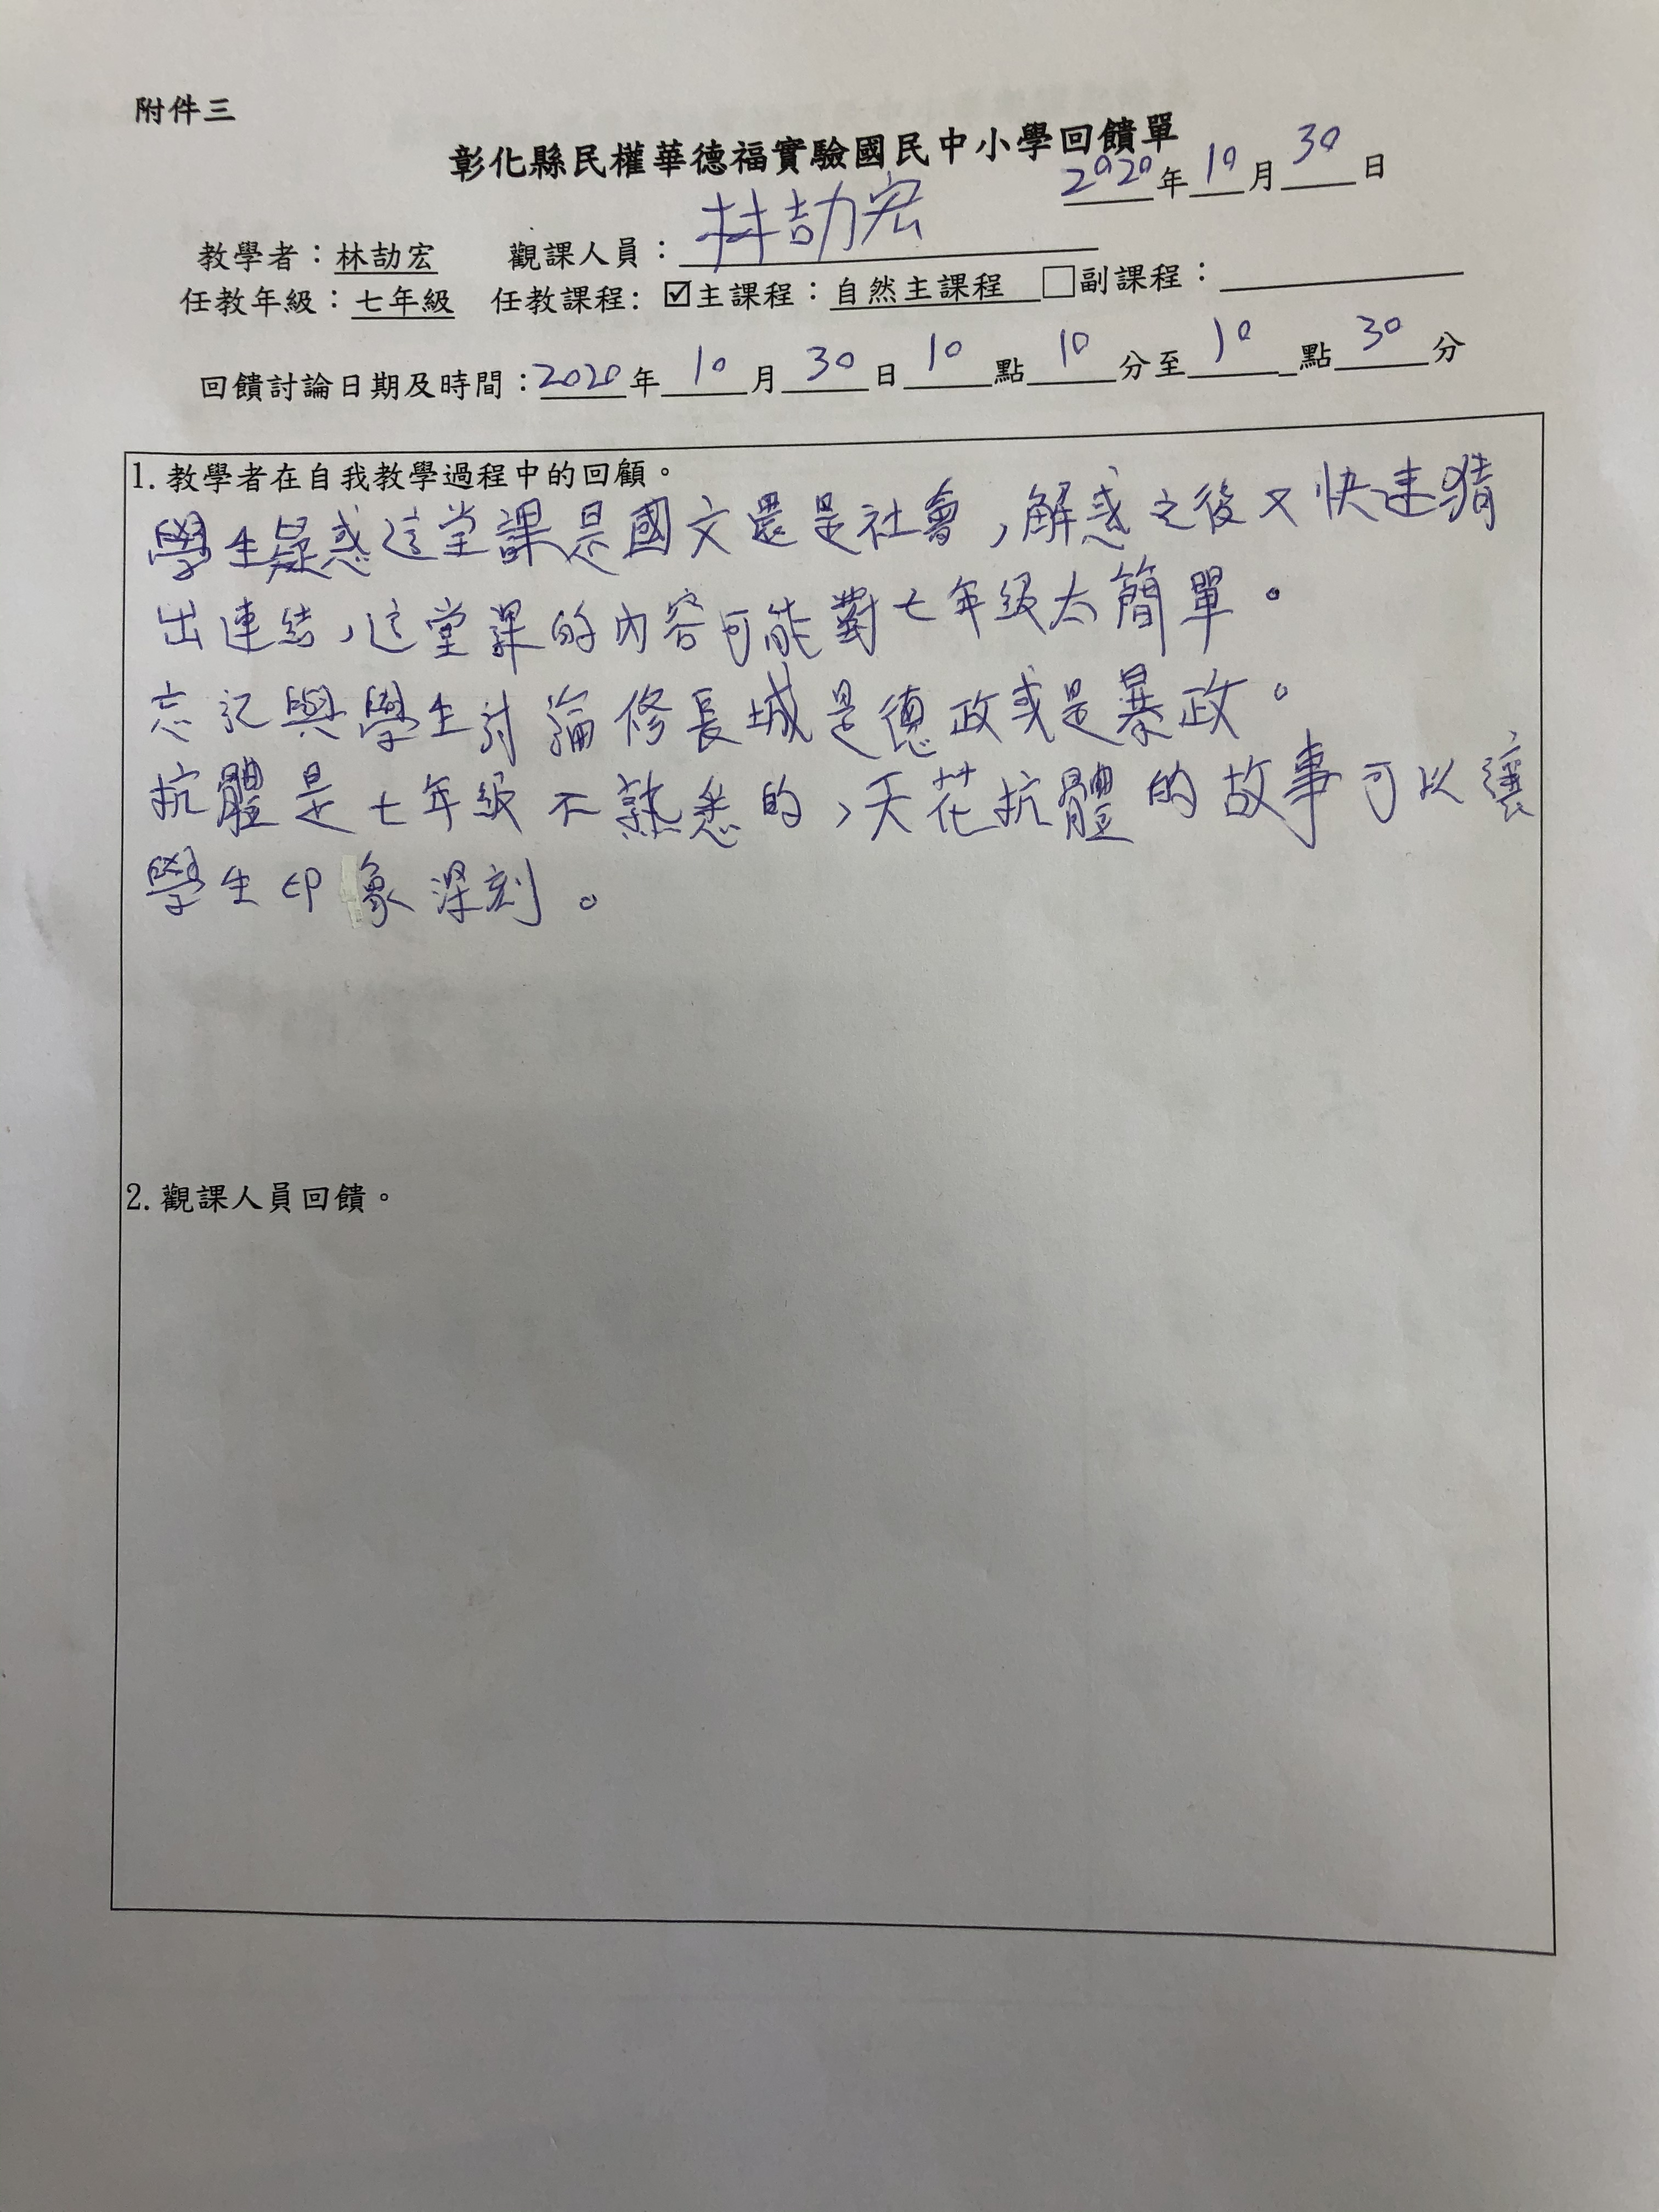 附件三
彰化縣民權華德福實驗國民中小學回饋單
2020年10月30日
教學者：林劼宏 觀課人員：林劼宏
任教年級：七年級 任教課程: ☑主課程：自然主課程 □副課程：
回饋討論日期及時間：2020年10月30日10點10分至10點30分
1.教學者在自我教學過程中的回顧。
學生疑惑這堂課是國文還是社會，解惑之後又快速猜
出連結，這堂課的內容可能對七年級太簡單。
忘記與學生討論修長城是德政或是暴政。
抗體是七年級不熟悉的，天花抗體的故事可以讓
學生印象深刻。
2.觀課人員回饋。